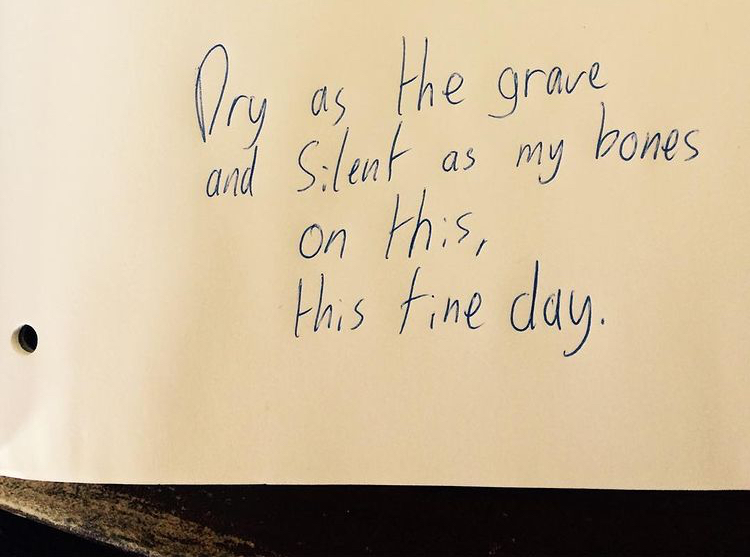 Dry as the grave
and Silent as my bones
on this,
this fine day.